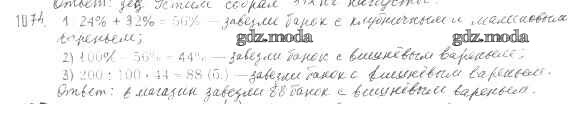 Ответ: зец Устим собрал капусты.
1074. 1. 24% + 32% = 56% — завезли банок с клубничным и малиновым
вареньем;
gdz.moda gdz.moda
2) 100% - 56% = 44% — завезли банок с вишнёвым вареньем;
3) 200 : 100 · 44 = 88 (б.) — завезли банок с вишнёвым вареньем.
Ответ: в магазин завезли 88 банок с вишнёвым вареньем.